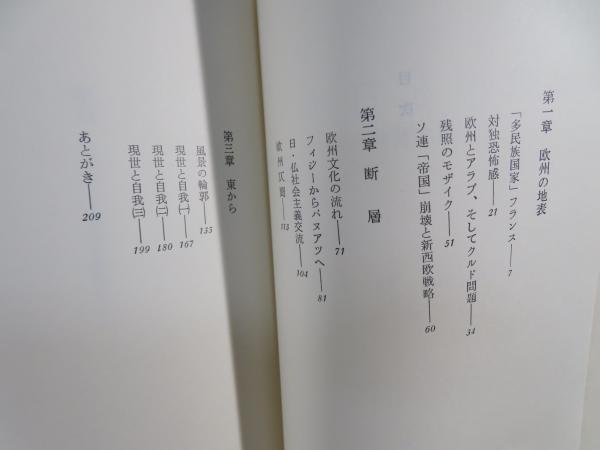 第一章 欧州の地表
「多民族国家」フランス——7
対独恐怖感——21
欧州とアラブ、そしてクルド問題——34
残照のモザイク——51
ソ連「帝国」崩壊と新西欧戦略——60
第二章 断層
欧州文化の流れ——71
フィジーからバヌアツへ——81
日仏社会主義交流——104
欧州仄聞——113
第三章 東から
風景の輪郭——135
現世と自我㈠——167
現世と自我㈡——180
現世と自我㈢——199
あとがき——209